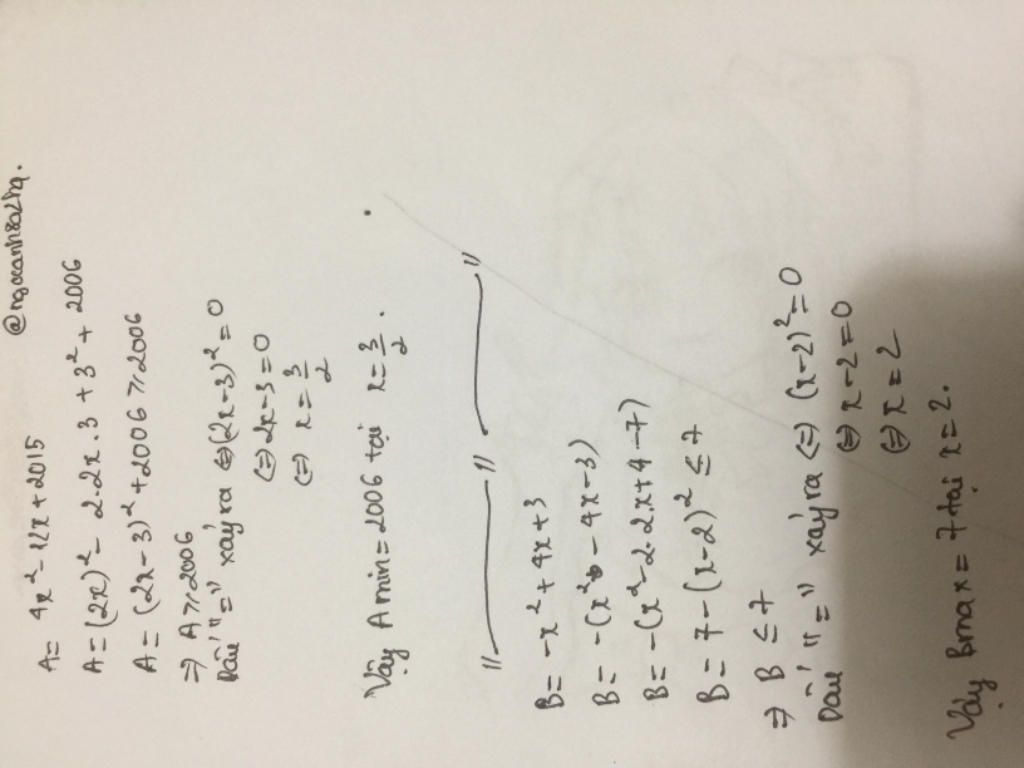 @ngocanh82hq.
A = 4x² - 12x + 2015
A = (2x)² - 2.2x.3 + 3² + 2006
A = (2x - 3)² + 2006 ⩾ 2006
⇒ A ⩾ 2006
Dấu "=" xảy ra ⇔ (2x-3)² = 0
⇔ 2x - 3 = 0
⇔ x = 3/2
Vậy Amin = 2006 tại x = 3/2.
B = -x² + 4x + 3
B = -(x² - 4x - 3)
B = -(x² - 2.2.x + 4 - 7)
B = 7 - (x - 2)² ≤ 7
⇒ B ≤ 7
Dấu "=" xảy ra ⇔ (x-2)² = 0
⇔ x - 2 = 0
⇔ x = 2
Vậy Bmax = 7 tại x = 2.